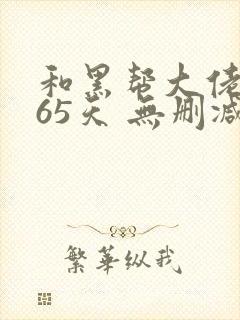 和黑帮大佬
65天 無删减
繁華纵我